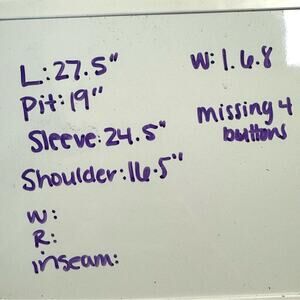 L: 27.5"
Pit: 19"
Sleeve: 24.5"
Shoulder: 16.5"
W:
R:
inseam:
W: 1.6.8
missing 4
buttons